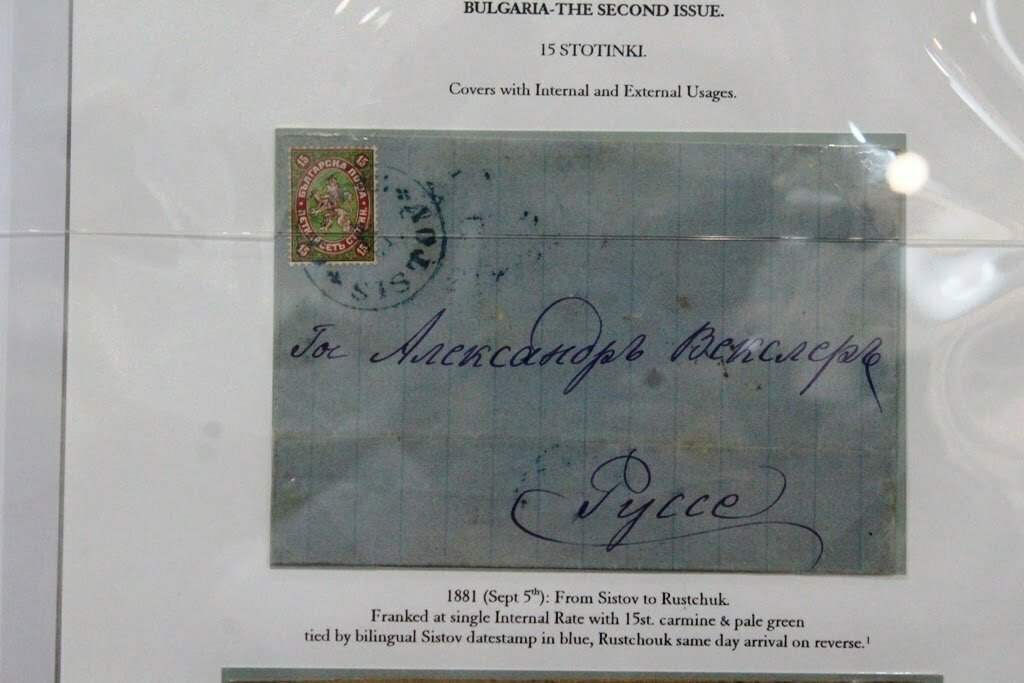 BULGARIA-THE SECOND ISSUE.
15 STOTINKI.
Covers with Internal and External Usages.
15 15
БЪЛГАРСКА ПОЩА
15 15
SISTOV
Гос Александръ Векслеръ
Руссе
1881 (Sept 5th): From Sistov to Rustchuk.
Franked at single Internal Rate with 15st. carmine & pale green
tied by bilingual Sistov datestamp in blue, Rustchouk same day arrival on reverse.¹